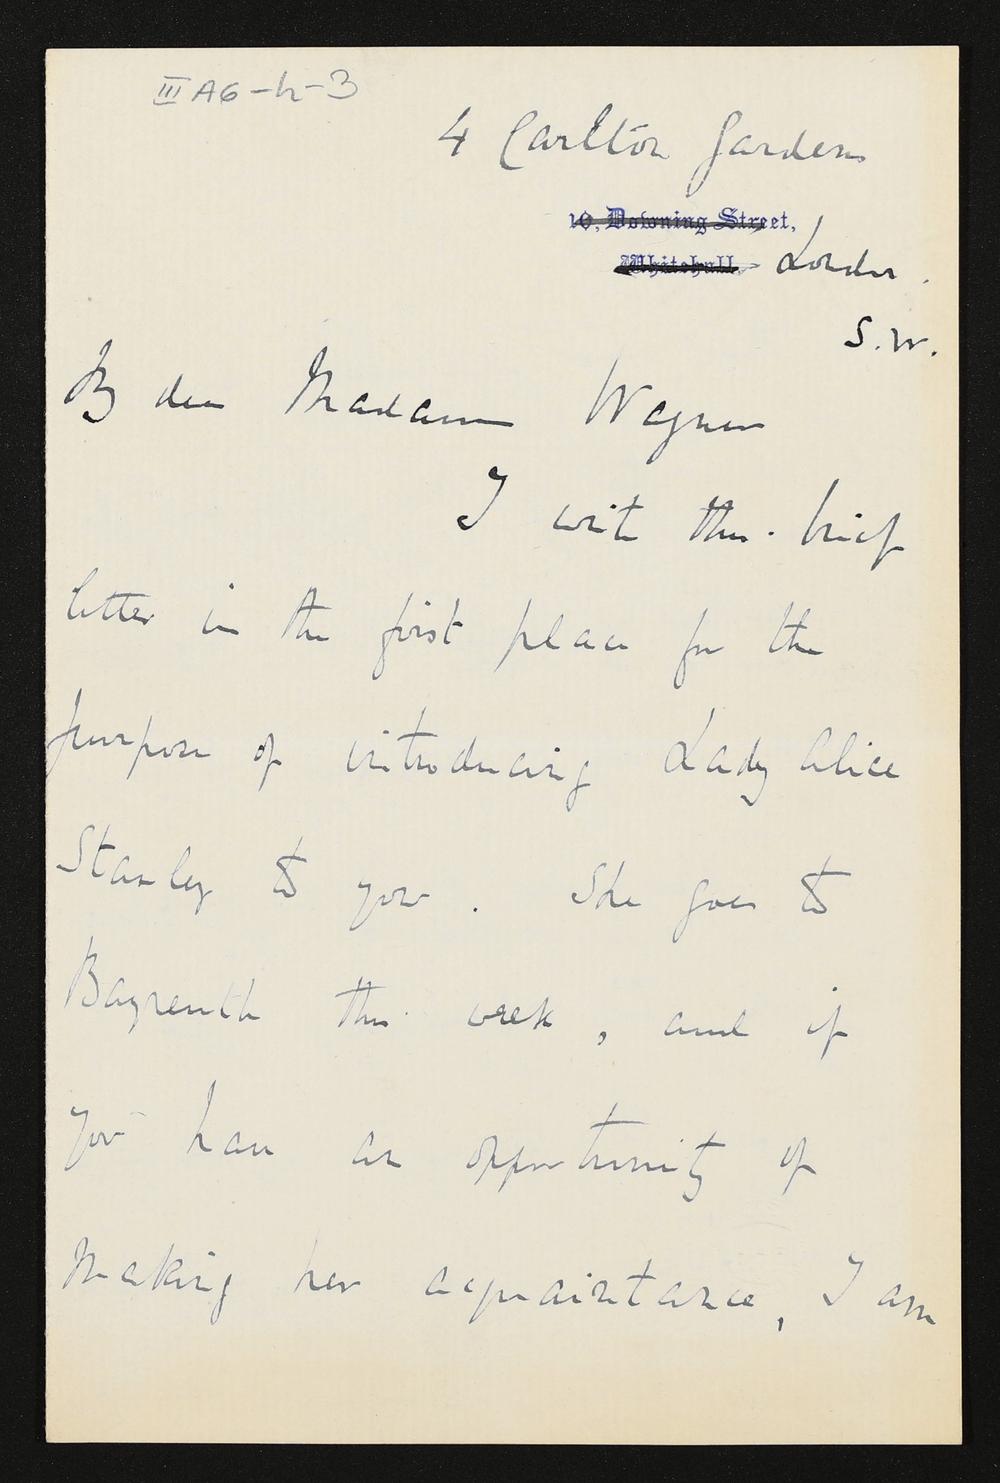 III A6-h-3
4 Carlton Gardens
10, Downing Street,
Whitehall. London.
S.W.
My dear Madame Wagner
I write this brief
letter in the first place for the
purpose of introducing Lady Alice
Stanley to you. She goes to
Bayreuth this week, and if
you have an opportunity of
making her acquaintance, I am